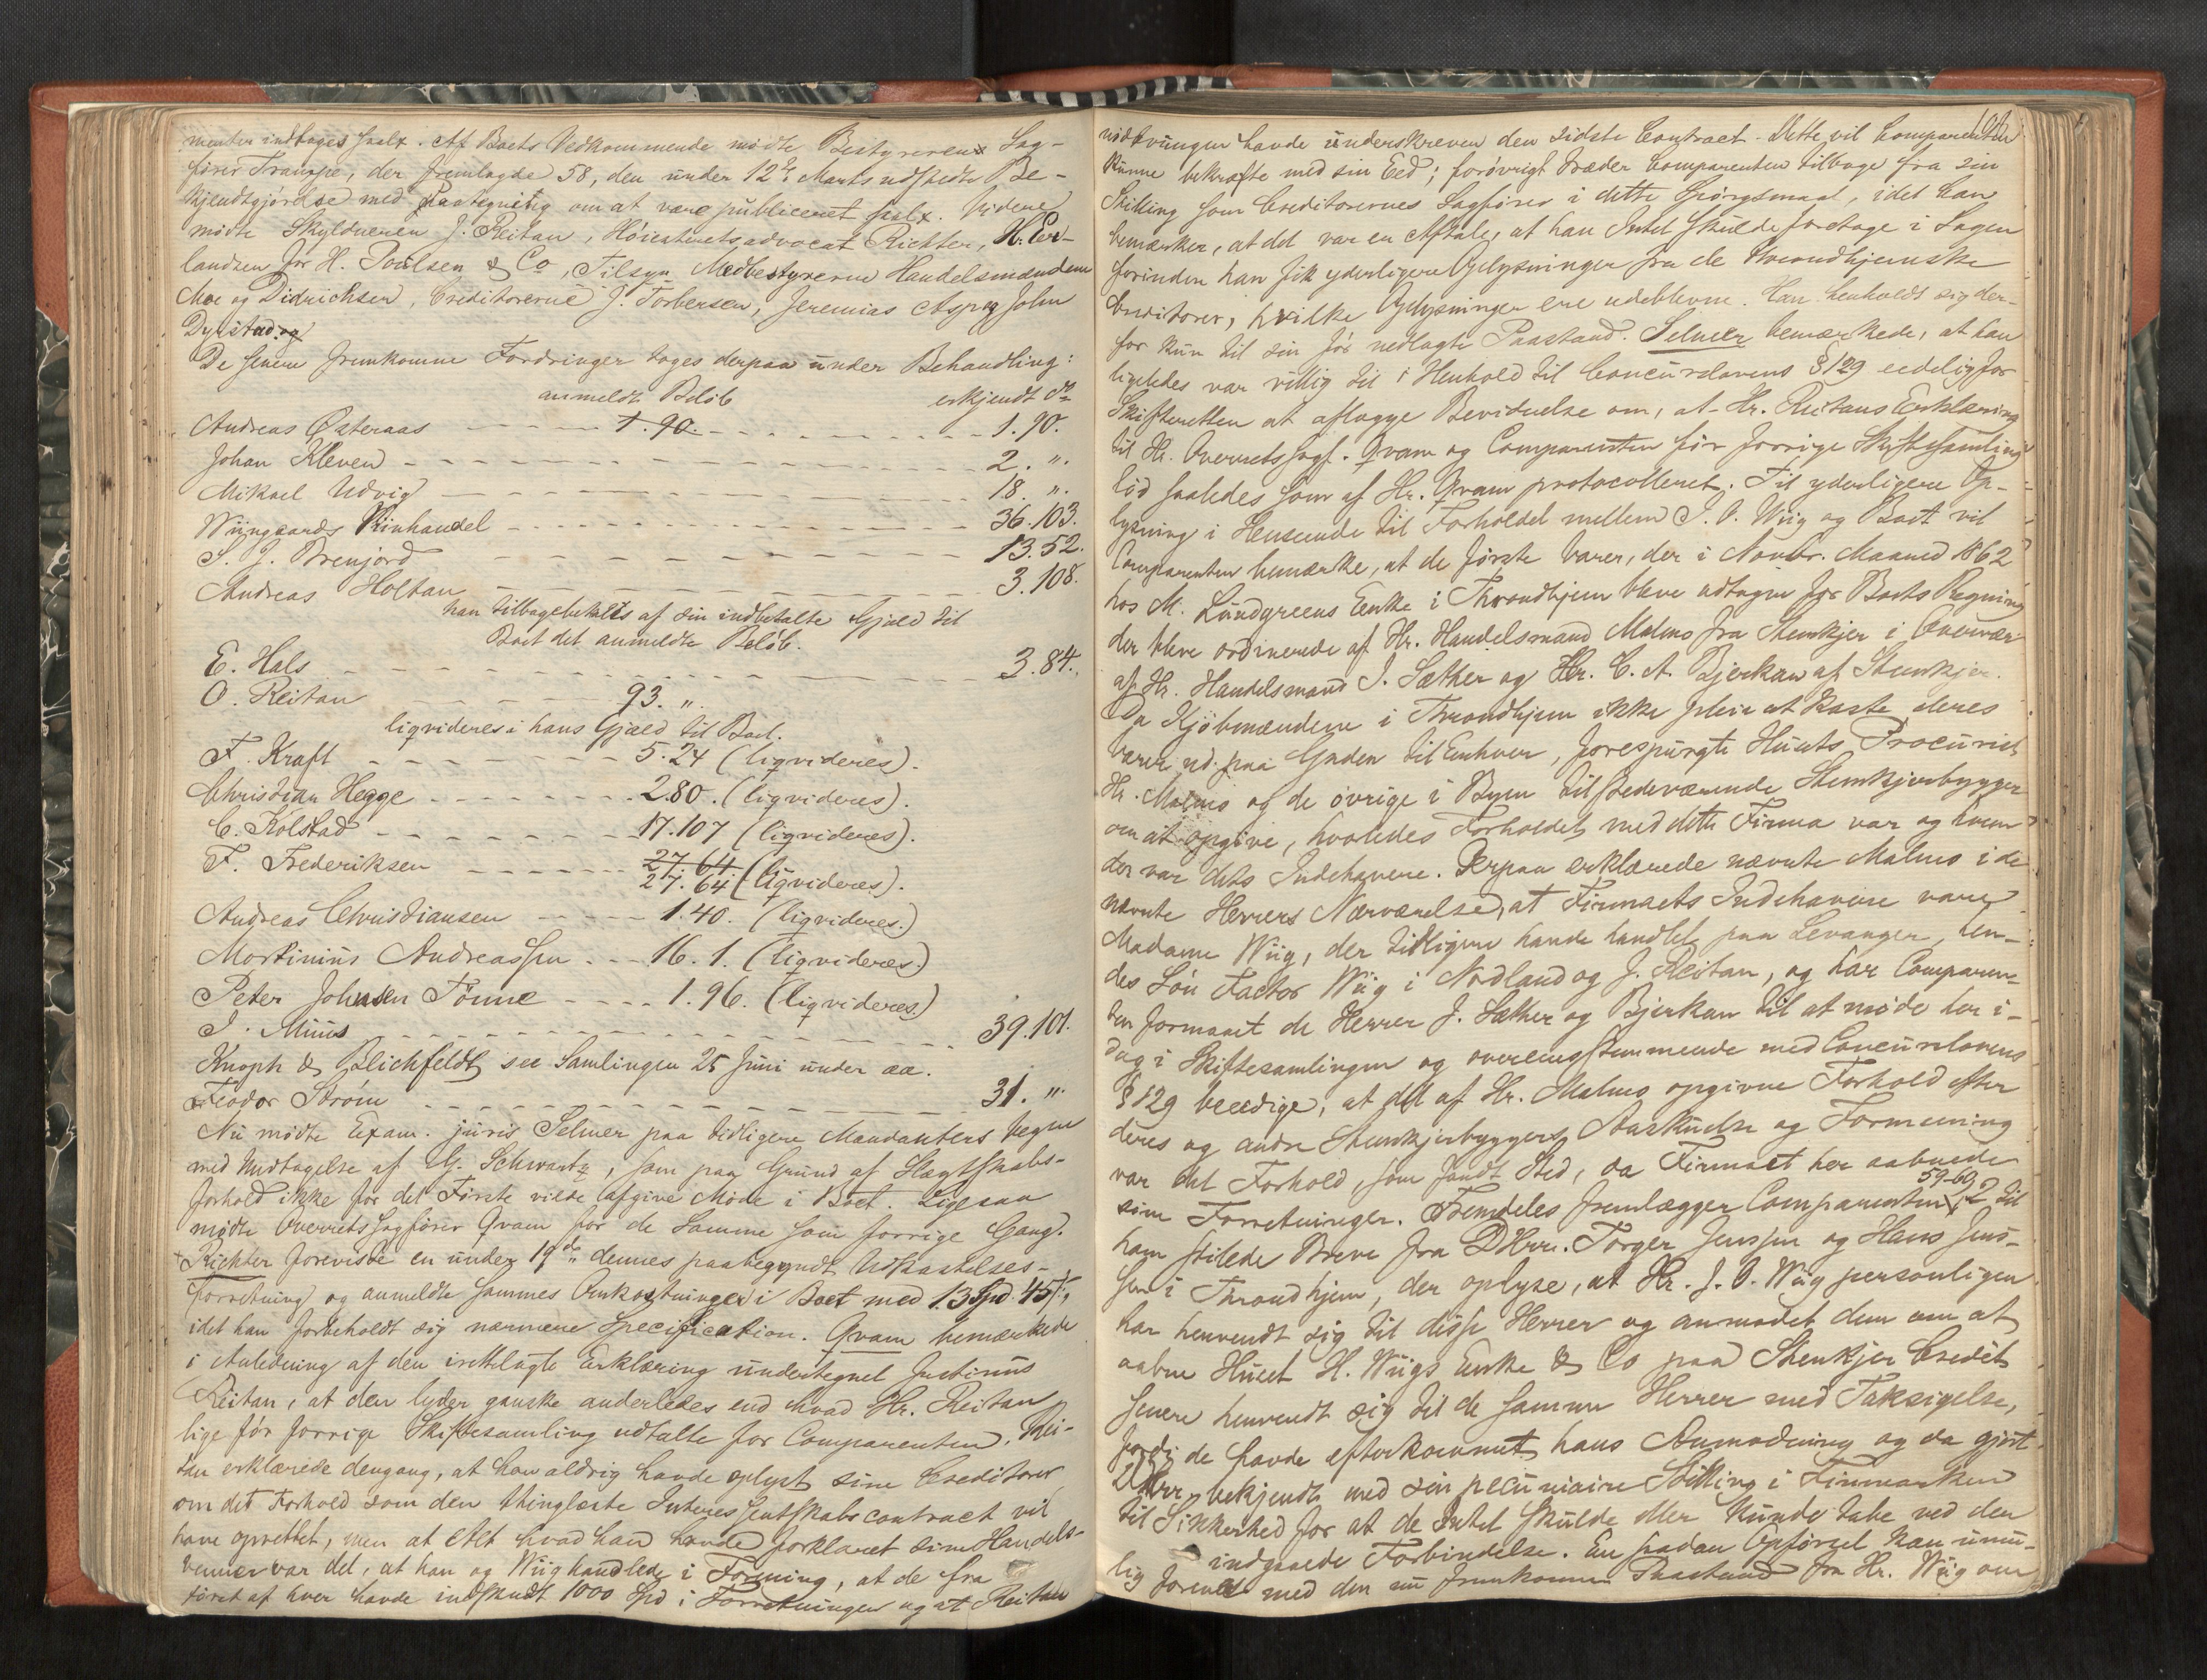 menter indtages saal. Af Boets Vedkommende mødte Bestyreren Sag-
fører Trampe, der fremlagde 58, den under 12te Marts udstedte Be-
kjendtgjørelse med Paategning om at være publiceret saal. Videre
mødte Skyldneren J. Reitan, Høiesteretsadvocat Richter, H. Er-
landsen for H. Poulsen & Co, Tilsyn Medbestyrerne Handelsmændene
Moe og Didrichsen, Creditorerne J. Torbersen, Jeremias Asp og John
Dyrstad og
De senere fremkomne Fordringer toges derpaa under Behandling:
anmeldt Beløb erkjendt do
Andreas Østeraas - - - 1.90. - - - 1.90.
Johan Kleven - - - 2. "
Mikael Udvig - - - 18. "
Wiingaards Viinhandel - - - 36.103.
S. J. Brenjord - - - 13.52.
Andreas Holtan - - - 3.108.
han tilbagebetales af sin indbetalte Gjæld til
Boet det anmeldte Beløb.
E. Hals - - - 3.84.
O. Reitan - - - 93. "
liqvideres i hans Gjæld til Boet.
F. Kraft - - - 5.24 (liqvideres).
Christian Hegge - - - 2.80. (liqvideres).
C. Kolstad - - - 17.107 (liqvideres).
F. Frederiksen - - - 27.64
27.64 (liqvideres).
Andreas Christiansen - - - 1.40. (liqvideres.)
Mortinius Andreassen - - - 16.1. (liqvideres.)
Peter Johnsen Tønne - - - 1.96. (liqvideres.)
I. Muus - - - 39.101.
Knoph & Blichfeldt see Samlingen 25 Juni under aa.
Feodor Strøm - - - 31. "
Nu mødte Exam. juris Selmer paa tidligere Mandanters Vegne
med Undtagelse af G. Schwartz, som paa Grund af Slægtskabs-
forhold ikke for det Første vilde afgive Møde i Boet. Ligesaa
mødte Overretssagfører Qvam for de Samme som forrige Gang.
Richter foreviste en under 19de dennes paabegyndt Udkastelses-
forretning og anmeldte sammes Omkostninger i Boet med 13 Spd. 45 s,
idet han forbeholdt sig nærmere Specification. Qvam bemærkede
i Anledning af den irettelagte Erklæring undertegnet Justinus
Reitan, at den lyder ganske anderledes end hvad Hr. Reitan
lige før forrige Skiftesamling udtalte for Comparenten. Rei-
tan erklærede dengang, at han aldrig havde oplyst sine Creditorer
om det Forhold som den thinglæste Interessentskabscontract vil
have oprettet, men at Alt hvad han havde forklaret sine Handels-
venner var det, at han og Wiig handlede i Forening, at de fra
først af hver havde indskudt 1000 Spd i Forretningen og at Reitan
nødtvungen havde underskreven den sidste Contract. Dette vil Comparenten
kunne bekræfte med sin Eed; forøvrigt træder Comparenten tilbage fra sin
Stilling som Creditorernes Sagfører i dette Spørgsmaal, idet han
bemærker, at det var en Aftale, at han Intet skulde foretage i Sagen
forinden han fik yderligere Oplysninger fra de throndhjemske
Creditorer, hvilke Oplysninger ere udeblevne. Han henholdt sig der-
for kun til sin før nedlagte Paastand. Selmer bemærkede, at han
ligeledes var villig til i Henhold til Concurslovens § 129 eedelig for
Skifteretten at aflægge Bevidnelse om, at Hr. Reitans Erklæring
til Hr. Overretssagf. Qvam og Comparenten før forrige Skiftesamling
lød saaledes som af Hr. Qvam protocolleret. Til yderligere Op-
lysning i Henseende til Forholdet mellem J. O. Wiig og Boet vil
Comparenten bemærke, at de første Varer, der i Novbr. Maaned 1862
hos M. Lundgreens Enke i Throndhjem bleve udtagne for Boets Regning
der bleve ordinerede af Hr. Handelsmand Malmo fra Stenkjer i Overvær
af Hr. Handelsmand J. Sæther og Hr. C. A. Bjerkan af Stenkjer.
Da Kjøbmændene i Throndhjem ikke pleie at kaste deres
Varer ud paa Gaden til Enhver, forespurgte Husets Procurist
Hr. Malmo og de øvrige i Byen tilstedeværende Stenkjerbygger
om at opgive, hvorledes Forholdet med dette Firma var og hvem
der var dets Indehavere. Derpaa erklærede nævnte Malmo i de
nævnte Herrers Nærværelse, at Firmaets Indehavere vare
Madame Wiig, der tidligere havde handlet paa Levanger, hen-
des Søn Factor Wiig i Nordland og J. Reitan, og har Comparen-
ten formaaet de Herrer J. Sæther og Bjerkan til at møde her i-
dag i Skiftesamlingen og overensstemmende med Concurslovens
§ 129 beedige, at det af Hr. Malmo opgivne Forhold efter
deres og andre Stenkjerbyggers Anskuelse og Formening
var det Forhold, som fandt Sted, da Firmaet her aabnede
sine Forretninger. Fremdeles fremlægger Comparenten 59-60, 2 til
ham stilede Breve fra DHrr. Torger Jenssen og Hans Jens-
sen i Throndhjem, der oplyse, at Hr. J. O. Wiig personligen
har henvendt sig til disse Herrer og anmodet dem om at
aabne Huset H. Wiigs Enke & Co paa Stenkjer Credit
senere henvendt sig til de samme Herrer med Taksigelse,
fordi de havde efterkommet hans Anmodning og da gjort
DHrr. bekjendt med sin pecuniaire Stilling i Finmarken
til Sikkerhed for at de Intet skulde eller kunde tabe ved den
indgaaede Forbindelse. En saadan Opførsel kan umu-
lig forenes med den nu fremkomne Paastand fra Hr. Wiig om